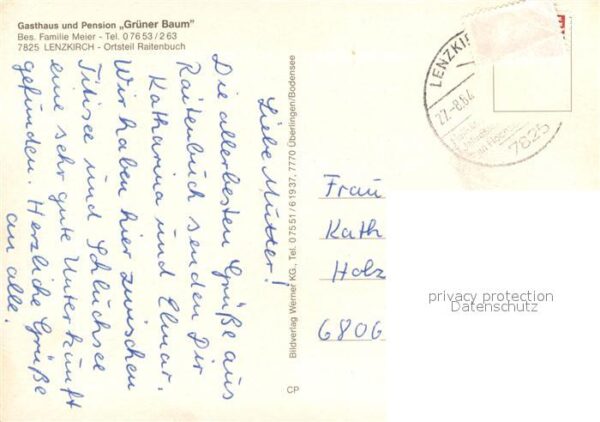 Gasthaus und Pension „Grüner Baum"
Bes. Familie Meier - Tel. 0 76 53 / 2 63
7825 LENZKIRCH - Ortsteil Raitenbuch
Liebe Mutter!
Die allerbesten Grüße aus
Raitenbuch senden Dir
Katharina und Elmar.
Wir haben hier zwischen
Titisee und Schluchsee
eine sehr gute Unterkunft
gefunden. Herzliche Grüße
an alle.
Bildverlag Werner KG., Tel. 0 75 51 / 6 19 37, 7770 Überlingen/Bodensee
CP
LENZKI
22.-8.84
7825
Frau
Kath
Holz
6806
privacy protection
Datenschutz